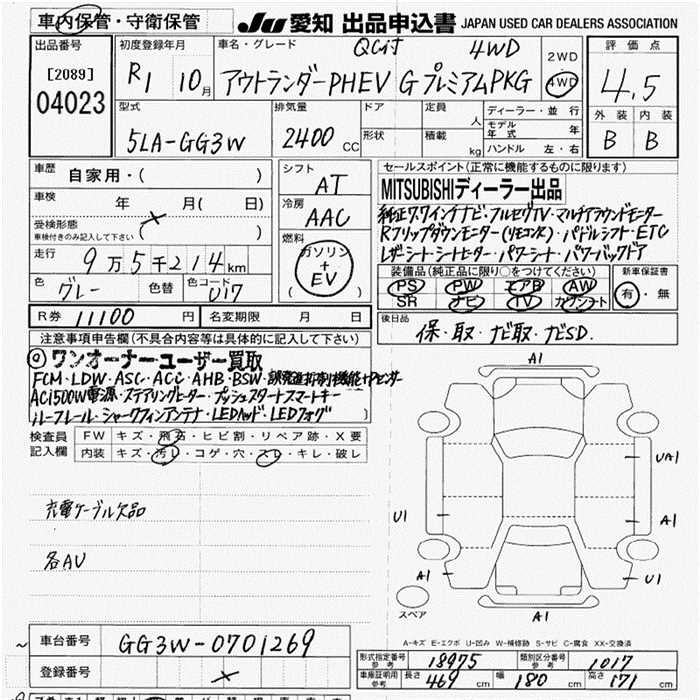 車内保管・守衛保管
JU 愛知 出品申込書 JAPAN USED CAR DEALERS ASSOCIATION
出品番号
[2089]
04023
初度登録年月
R1 10月
車名・グレード
4WD
アウトランダーPHEV GプレミアムPKG
2WD
4WD
評価点
4.5
外装 内装
B B
型式
5LA-GG3W
排気量
2400 CC
ドア
形状
定員 人
積載 kg
ディーラー・並行
モデル年式 年
ハンドル 左・右
車歴 自家用・( )
車検 年 月( 日)
受検形態
車検付きのみ記入して下さい
走行 9万5千214km
色 グレー
色替
色コード U17
シフト AT
冷房 AAC
燃料
ガソリン
+
EV
( )
セールスポイント(正常に機能するものに限ります)
MITSUBISHIディーラー出品
純正9.2インチナビ・フルセグTV・マルチアラウンドモニター
Rフリップダウンモニター(リモコン欠)・パドルシフト・ETC
レザーシート・シートヒーター・パワーシート・パワーバックドア
装備品(純正品に限り○をつけてください)
PS PW エアB AW
SR ナビ TV カワシート
新車保証書
有・無
R券 11100円
名変期限 月 日
後日品
保・取・ナビ取・ナビSD.
注意事項申告欄(不具合内容等は具体的に記入して下さい)
ワンオーナーユーザー買取
FCM・LDW・ASC・ACC・AHB・BSW・誤発進抑制機能・
AC1500W電源・ステアリングヒーター・プッシュスタートスマートキー
ルーフレール・シャークフィンアンテナ・LEDヘッド・LEDフォグ
検査員記入欄
FW キズ・飛石・ヒビ割・リペア跡・X要
内装 キズ・汚レ・コゲ・穴・スレ・キレ・破レ
充電ケーブル欠品
各AU
A1
UA1
U1
A1
A1
U1
A1
スペア
A-キズ E-エクボ U-凹み W-補修跡 S-サビ C-腐食 XX-交換済
車台番号 GG3W-0701269
登録番号
型式指定番号 参考 18975
類別区分番号 参考 1017
車庫証明用 参考 長さ 469 cm 幅 180 cm 高さ 171 cm